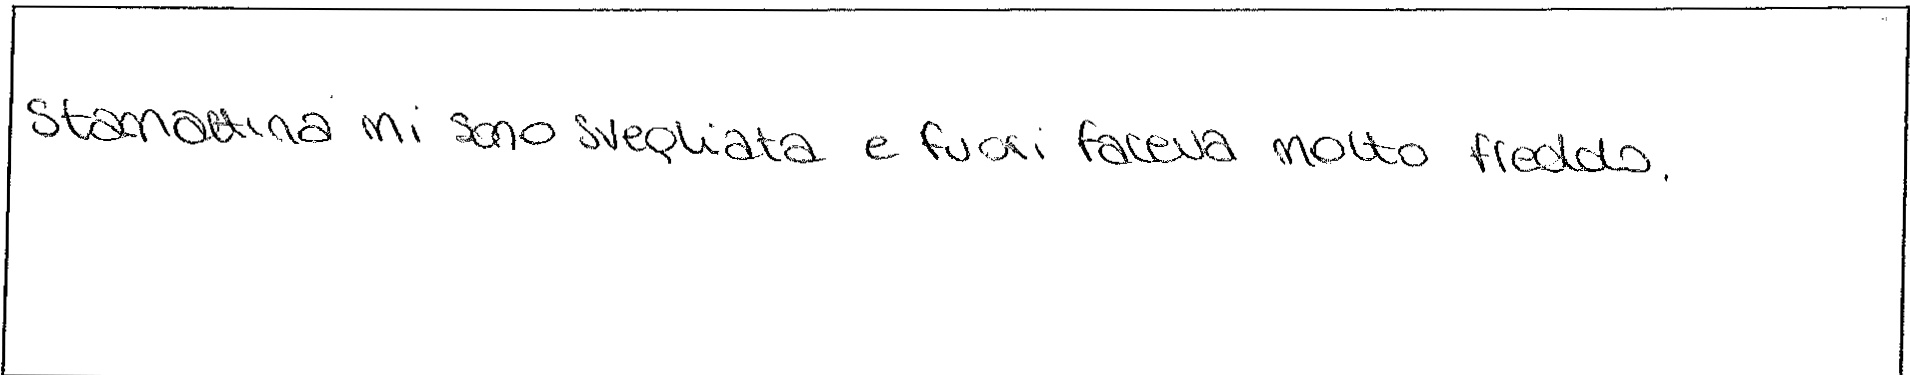 Stamattina mi sono svegliata e fuori faceva molto freddo.